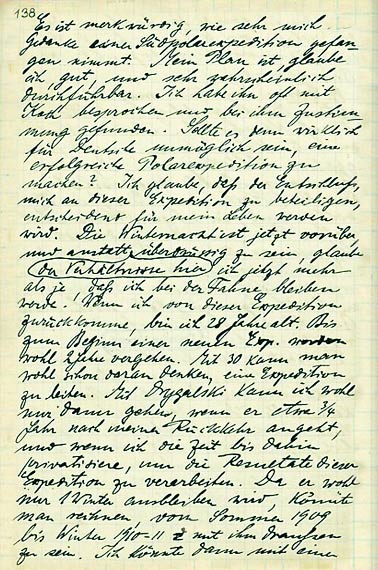 138
Es ist merkwürdig, wie sehr mich
Gedanke einer Südpolarexpedition gefan-
gen nimmt. Mein Plan ist, glaube
ich, gut, und sehr wahrscheinlich
durchführbar. Ich habe ihn oft mit
Koch besprochen und bei ihm Zustim-
mung gefunden. Sollte es denn wirklich
für Deutsche unmöglich sein, eine
erfolgreiche Polarexpedition zu
machen? Ich glaube, daß der Entschluß,
mich an dieser Expedition zu beteiligen,
entscheidend für mein Leben werden
wird. Die Winternacht ist jetzt vorüber,
und anstatt überdrüssig zu sein, glaube
(der Verhältnisse hier) ich jetzt mehr
als je, daß ich bei der Fahne bleiben
werde. Wenn ich von dieser Expedition
zurückkomme, bin ich 28 Jahre alt. Bis
zum Beginn einer neuen Exp. werden
wohl 2 Jahre vergehen. Mit 30 kann man
wohl schon daran denken, eine Expedition
zu leiten. Mit Drygalski kann ich wohl
nur dann gehen, wenn er etwa 3/4
Jahr nach meiner Rückkehr angeht,
und wenn ich die Zeit bis dahin
privatisiere, um die Resultate dieser
Expedition zu verarbeiten. Da er wohl
nur 1 Winter ausbleiben wird, könnte
man rechnen, vom Sommer 1909
bis Winter 1910-11 mit ihm draußen
zu sein. Ich könnte dann mit einer